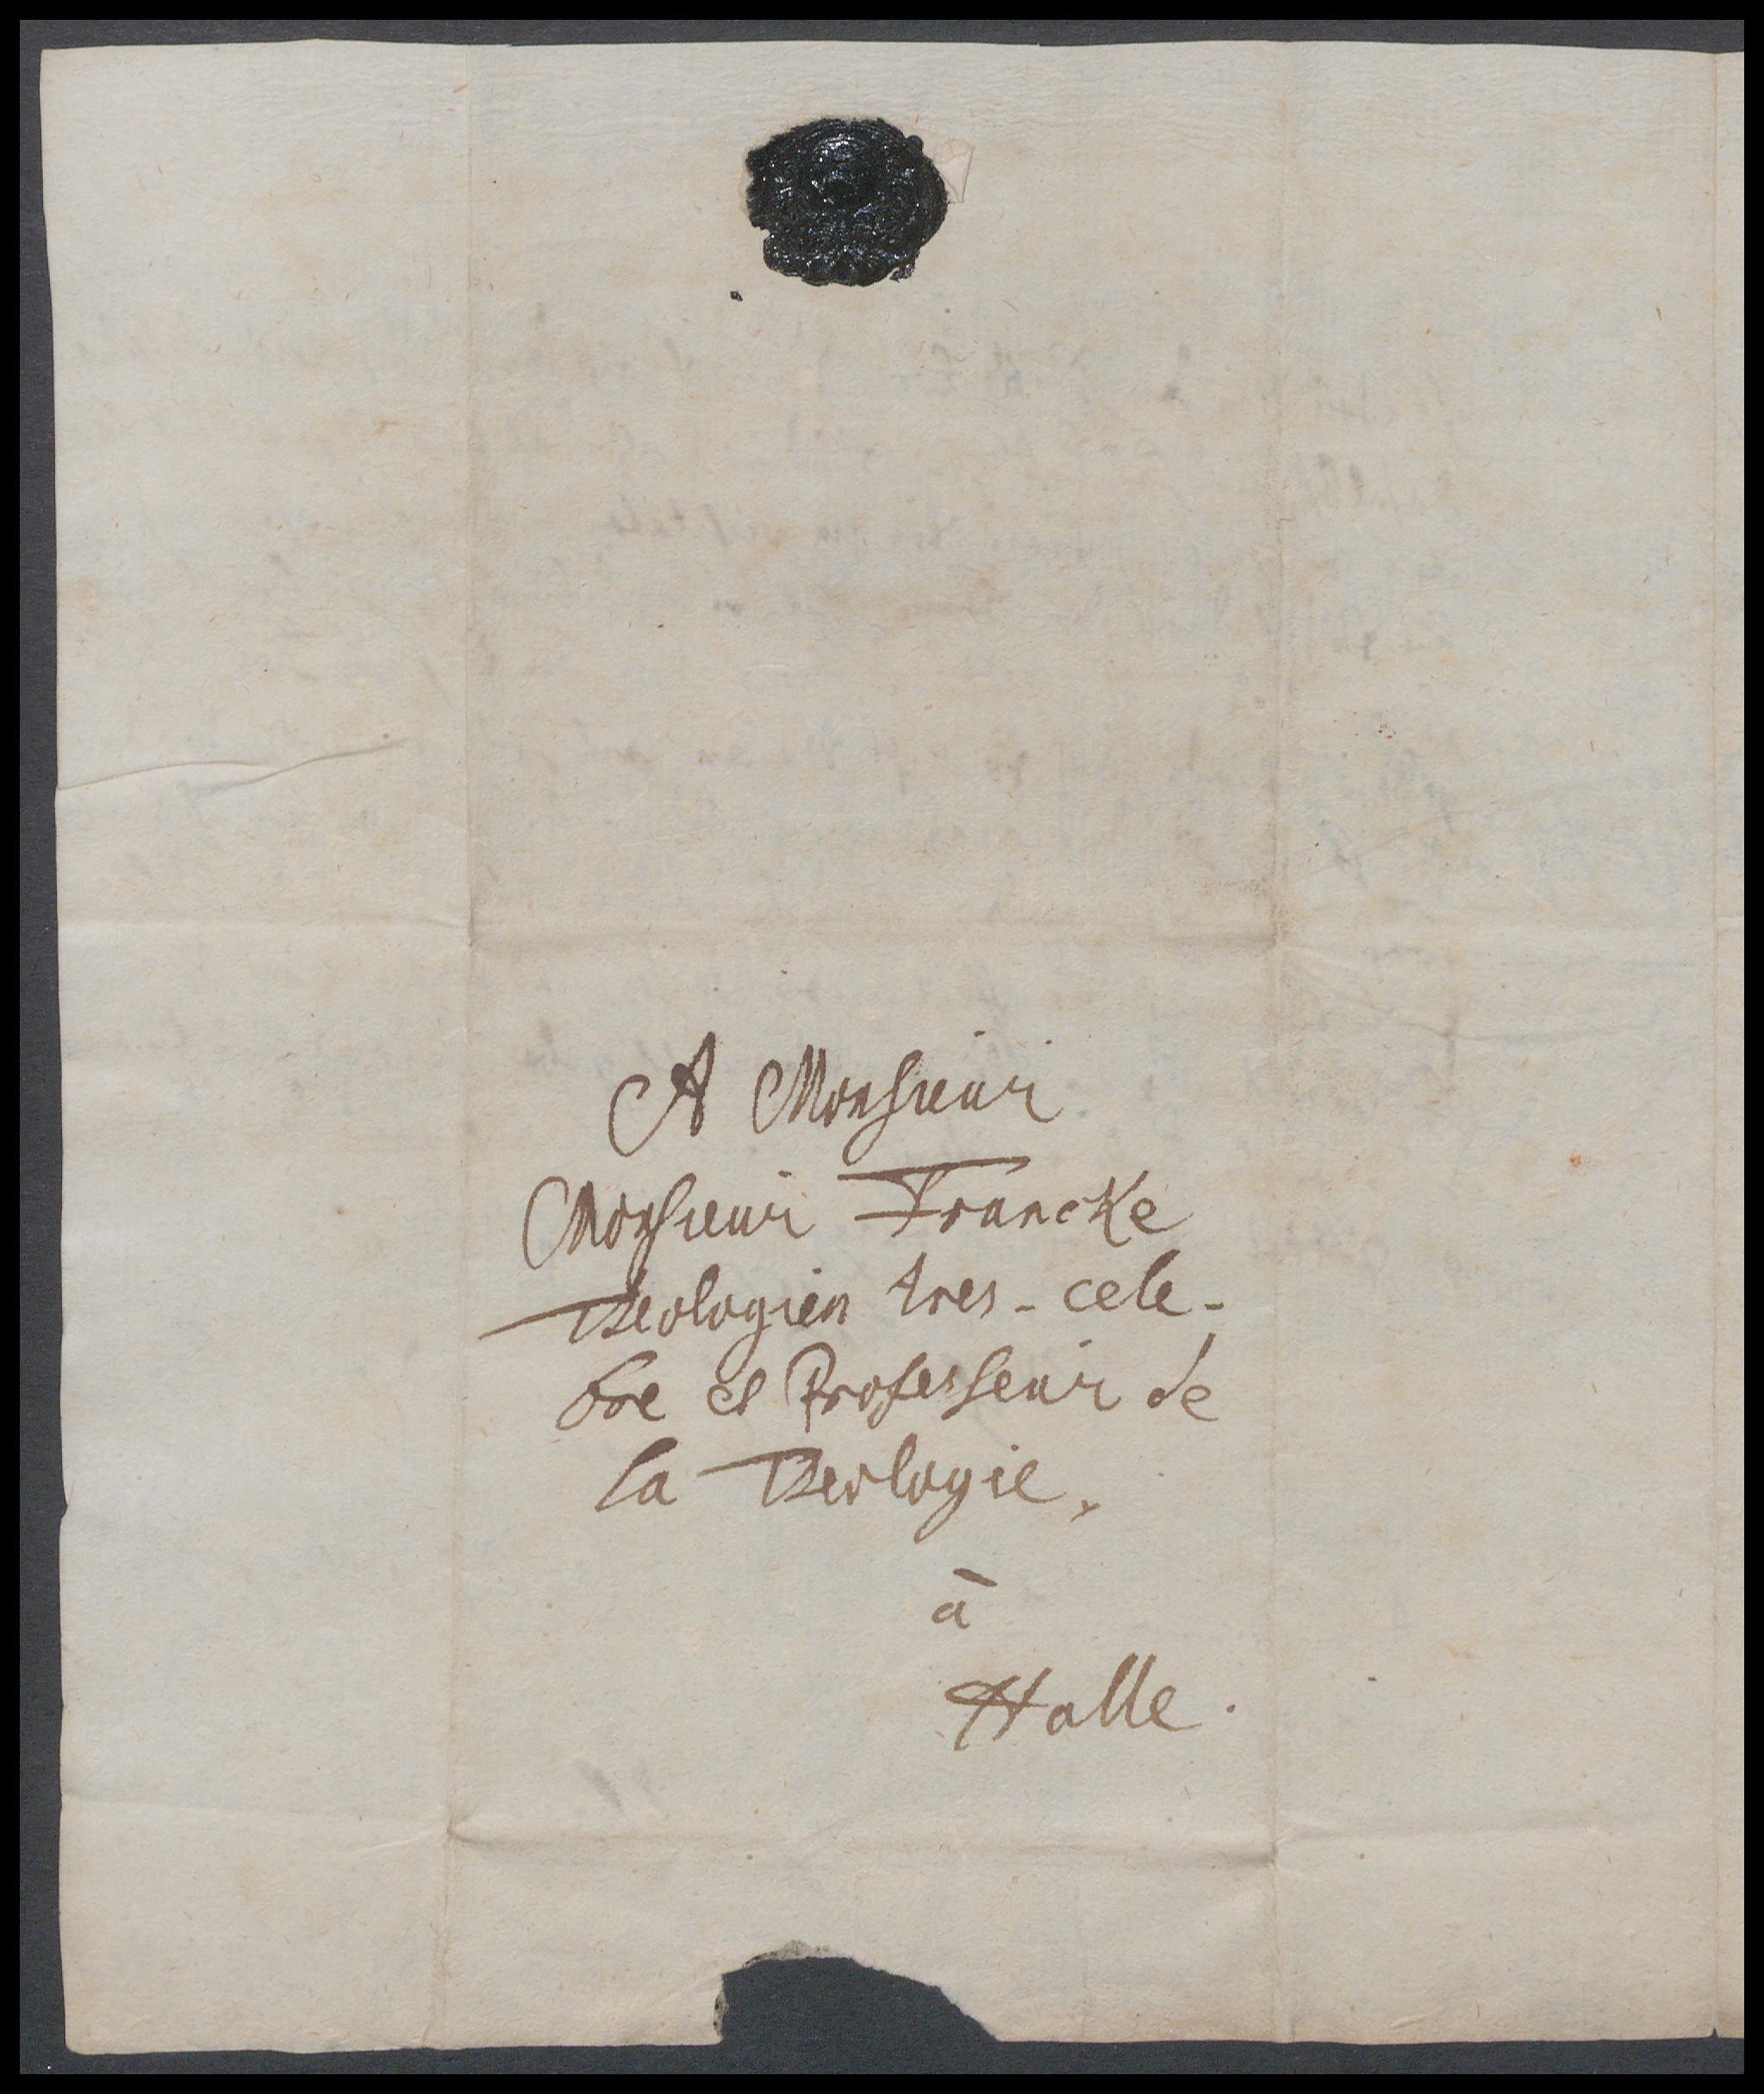 A Monsieur
Monsieur Francke
Theologien tres-cele-
bre et Professeur de
la Theologie.
à
Halle.